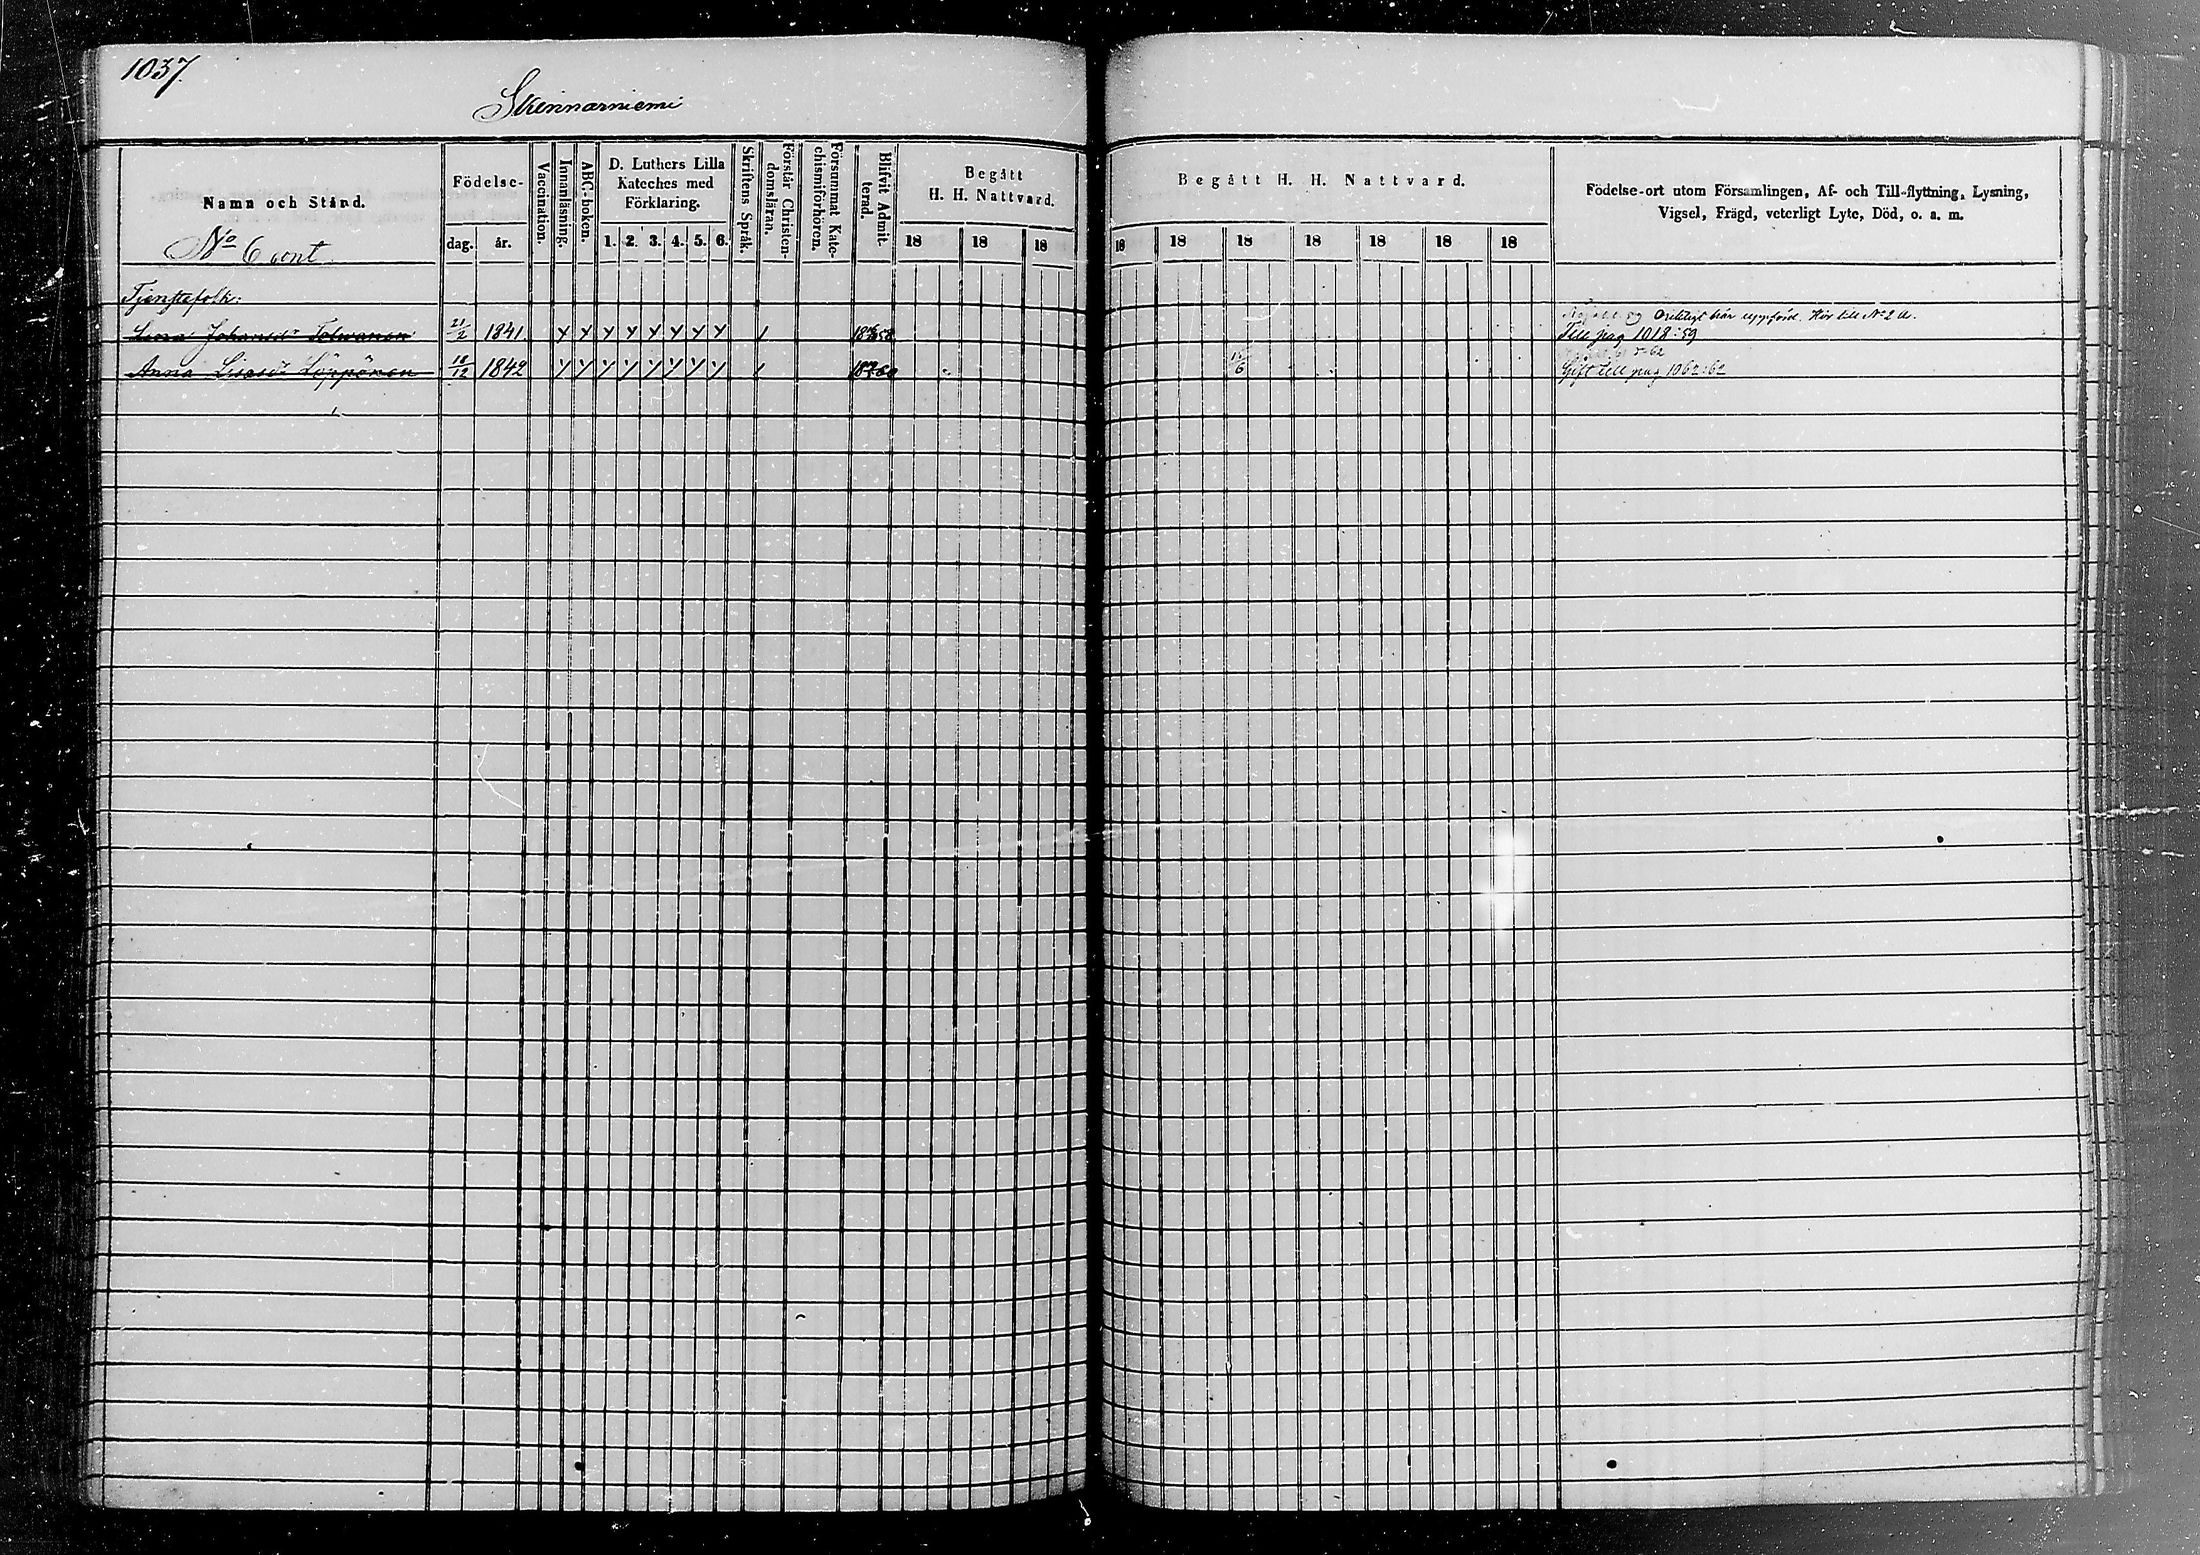 1037.
Skinnarniemi
Namn och Stånd.
No 6 cont.
Födelse-
dag. år.
Vaccination.
Innanläsning.
ABC-boken.
D. Luthers Lilla
Kateches med
Förklaring.
1. 2. 3. 4. 5. 6.
Skriftens Språk.
Förstår Christen-
domsläran.
Försummat Kate-
chismiförhören.
Blifvit Admit-
terad.
Begått
H. H. Nattvard.
18 18 18
Begått H. H. Nattvard.
18 18 18 18 18 18 18
Födelse-ort utom Församlingen, Af- och Till-flyttning, Lysning,
Vigsel, Frägd, veterligt Lyte, Död, o. a. m.
Tjenstefolk:
Lena Johansdr Tolwanen 21/2 1841. 1858 Orätteligt här uppförd. Hör till No 2
Till pag 1018:59
Anna Lisa Löppönen 18/12 1842 1860 15/6
Gift till pag 1062:62